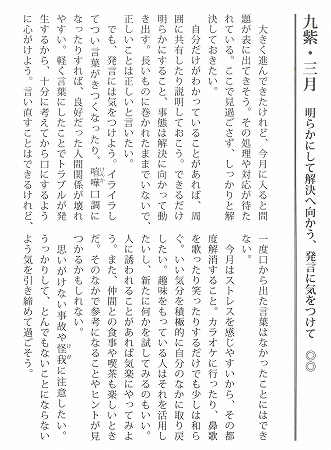 九紫・三月　明らかにして解決へ向かう、発言に気をつけて　◎◎
　大きく進んできたけれど、今月に入ると問
題が表に出てきそう。その処理や対応が待た
れている。ここで見過ごさず、しっかりと解
決しておきたい。
　自分だけがわかっていることがあれば、周
囲に共有したり説明しておこう。できるだけ
明らかにすること、事態は解決に向かって動
き出す。長いものに巻かれたままでいないで、
正しいことは正しいと言いたい。
　でも、発言には気をつけよう。イライラし
てつい言葉がきつくなったり、喧嘩口調に
なったりすれば、良好だった人間関係が壊れ
やすい。軽く言葉にしたことでトラブルが発
生するから、十分に考えてから口にするよう
に心がけよう。言い直すことはできるけれど、
一度口から出た言葉はなかったことにはでき
ない。
　今月はストレスを感じやすいから、その都
度解消すること。カラオケに行ったり、鼻歌
を歌ったり笑ったりするだけでも少しは和ら
ぐ。いい気分を積極的に自分のなかに取り戻
したい。趣味をもっている人はそれを活用し
たいし、新たに何かを試してみるのもいい。
人に誘われることがあれば気楽にやってみよ
う。また、仲間との食事や喫茶も楽しいとき
だ。そのなかで参考になることやヒントが見
つかるかもしれない。
　思いがけない事故や怪我に注意したい。
うっかりして、とんでもないことにならない
よう気を引き締めて過ごそう。